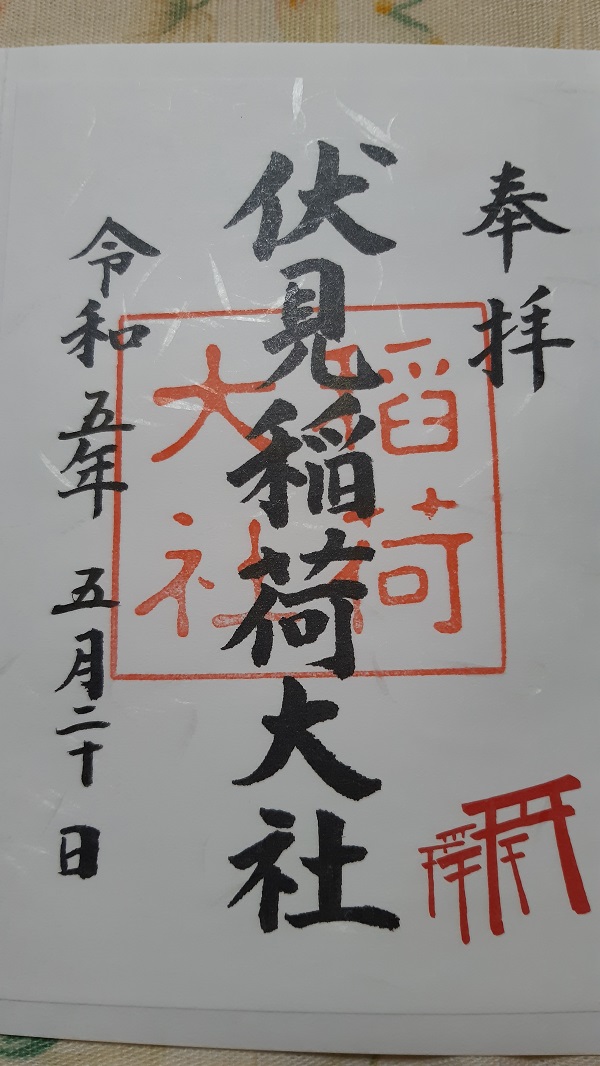 奉拝
伏見稲荷大社
稲荷
大社
令和五年 五月二十日